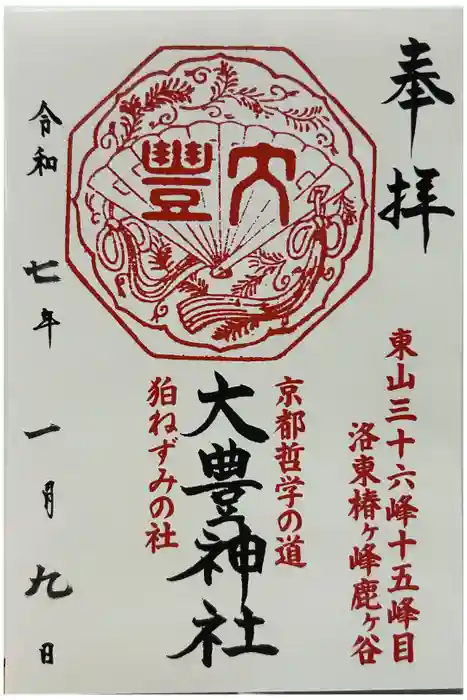 奉拝
東山三十六峰十五峰目
洛東椿ヶ峰鹿ヶ谷
京都哲学の道
大豊
大豊神社
狛ねずみの社
令和七年一月九日